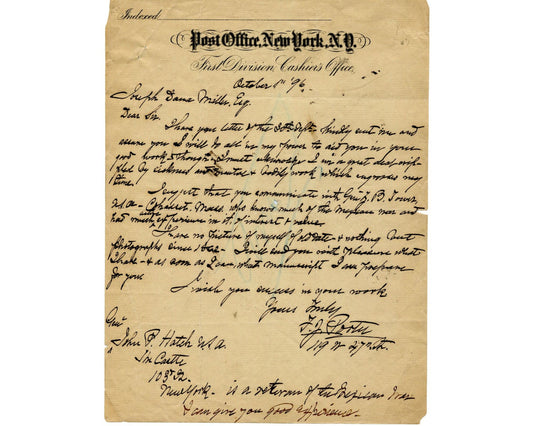 Indexed
Post Office, New York, N.Y.
First Division, Cashier's Office,
October 1st '96.
Joseph Dana Miller, Esq.
Dear Sir
I have your letter of the 30th Sept. kindly sent me and
assure you I will do all in my power to aid you in your
good work - though I must acknowledge I am a great deal
by sickness and bodily work which engross my
time.
I suggest that you communicate with Genl Z. B. Tower
U.S.A. - Cohasset, Mass. who knows much of the Mexican war and
had much experience in it of interest & value.
I have no picture of myself of old date & nothing but
photographs since 1862 - I will send you with pleasure what
I have - & as soon as I can, what manuscript I can prepare
for you
I wish you success in your work
Yours truly
F J Porter
119 W 47th St.
Genl
John P. Hatch U.S.A.
103d St.
New York - is a veteran of the Mexican War
& can give you good experience.